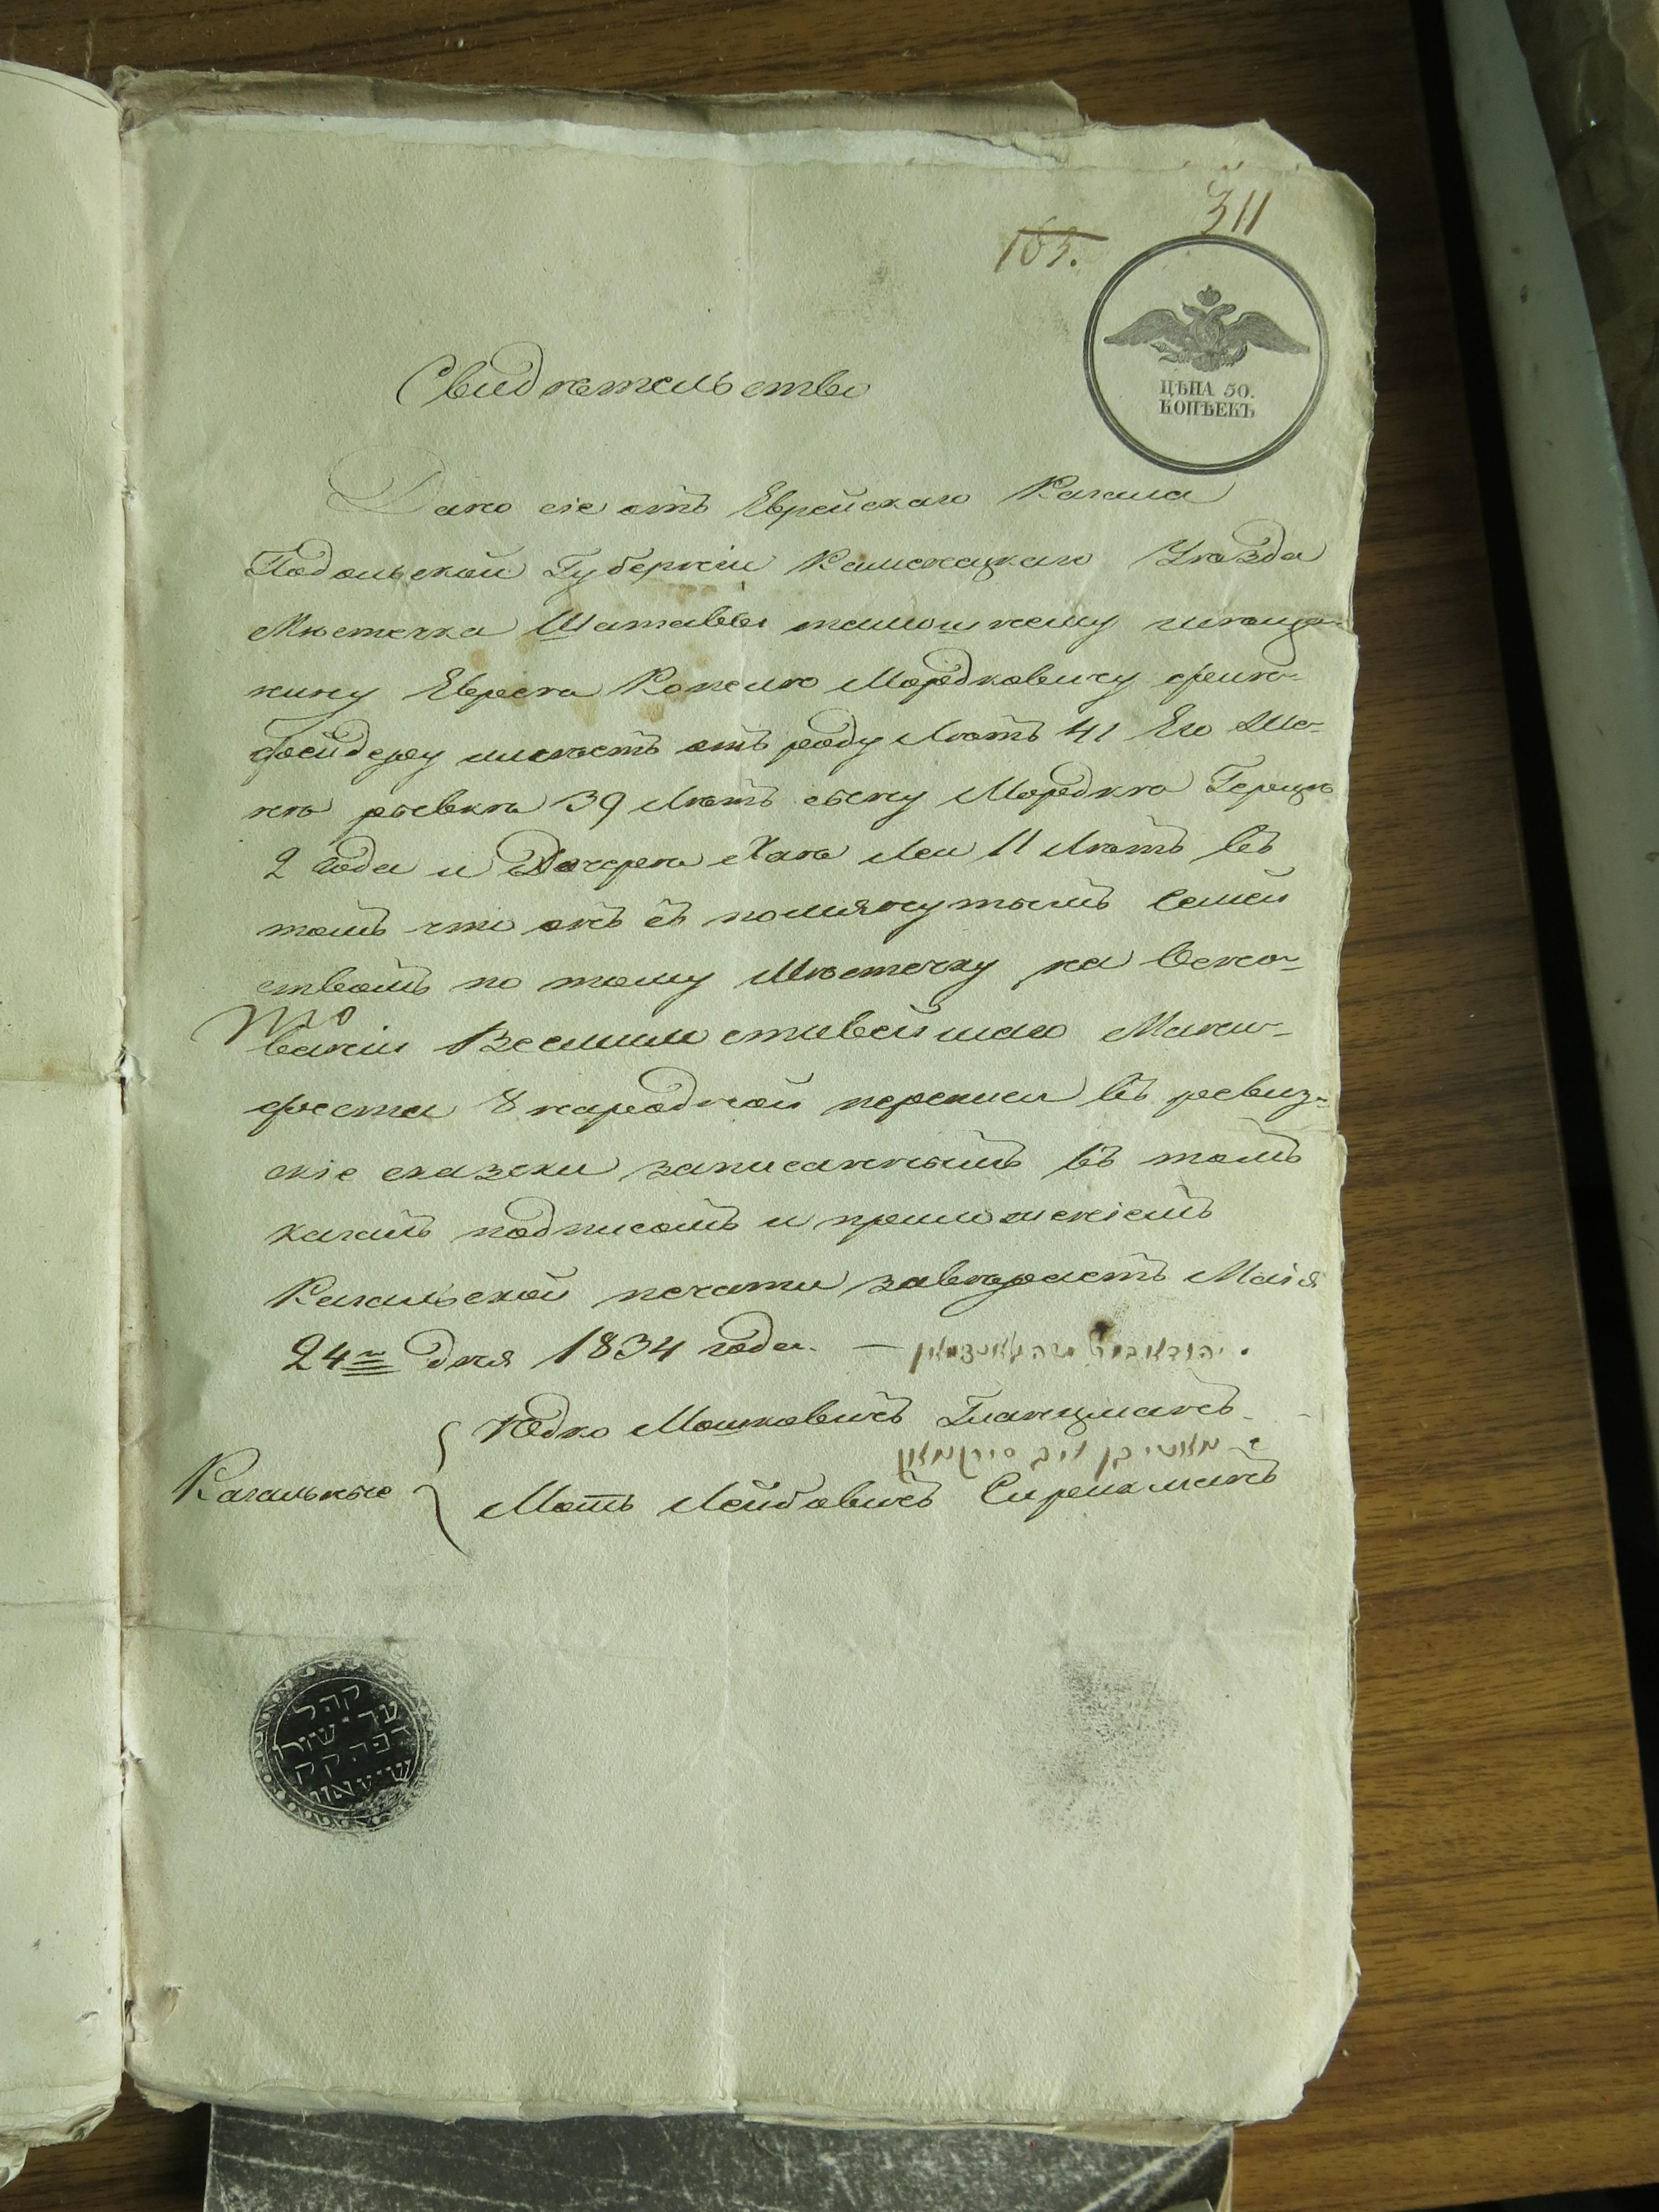 311
165.
ЦѢНА 50.
КОПѢЕКЪ
Свидѣтельство
Дано сіе отъ Еврейскаго Кагала
Подольской Губерніи Каменецкаго Уѣзда
Мѣстечка Шатавы тамошнему мѣща-
нину Еврею Копелю Мордковичу
имѣетъ отъ роду лѣтъ 41 Его Же-
нѣ рывкѣ 39 лѣтъ сыну Мордкѣ Герцѣ
2 года и Дочерѣ Ханѣ Леи 11 лѣтъ въ
томъ что онъ съ помянутымъ семей
ствомъ по тому Мѣстечку на осно-
ваніи Всемилостивейшаго Мани-
феста 8 народной переписи въ ревиз-
скіе сказски записаннымъ въ томъ
кагалъ подписомъ и приложеніемъ
Кагальской печати завѣряетъ Маія
24го дня 1834 года. —
Юдко Мошковичъ Гланцманъ
Кагальные
Мотъ Лейбовичъ
קהל